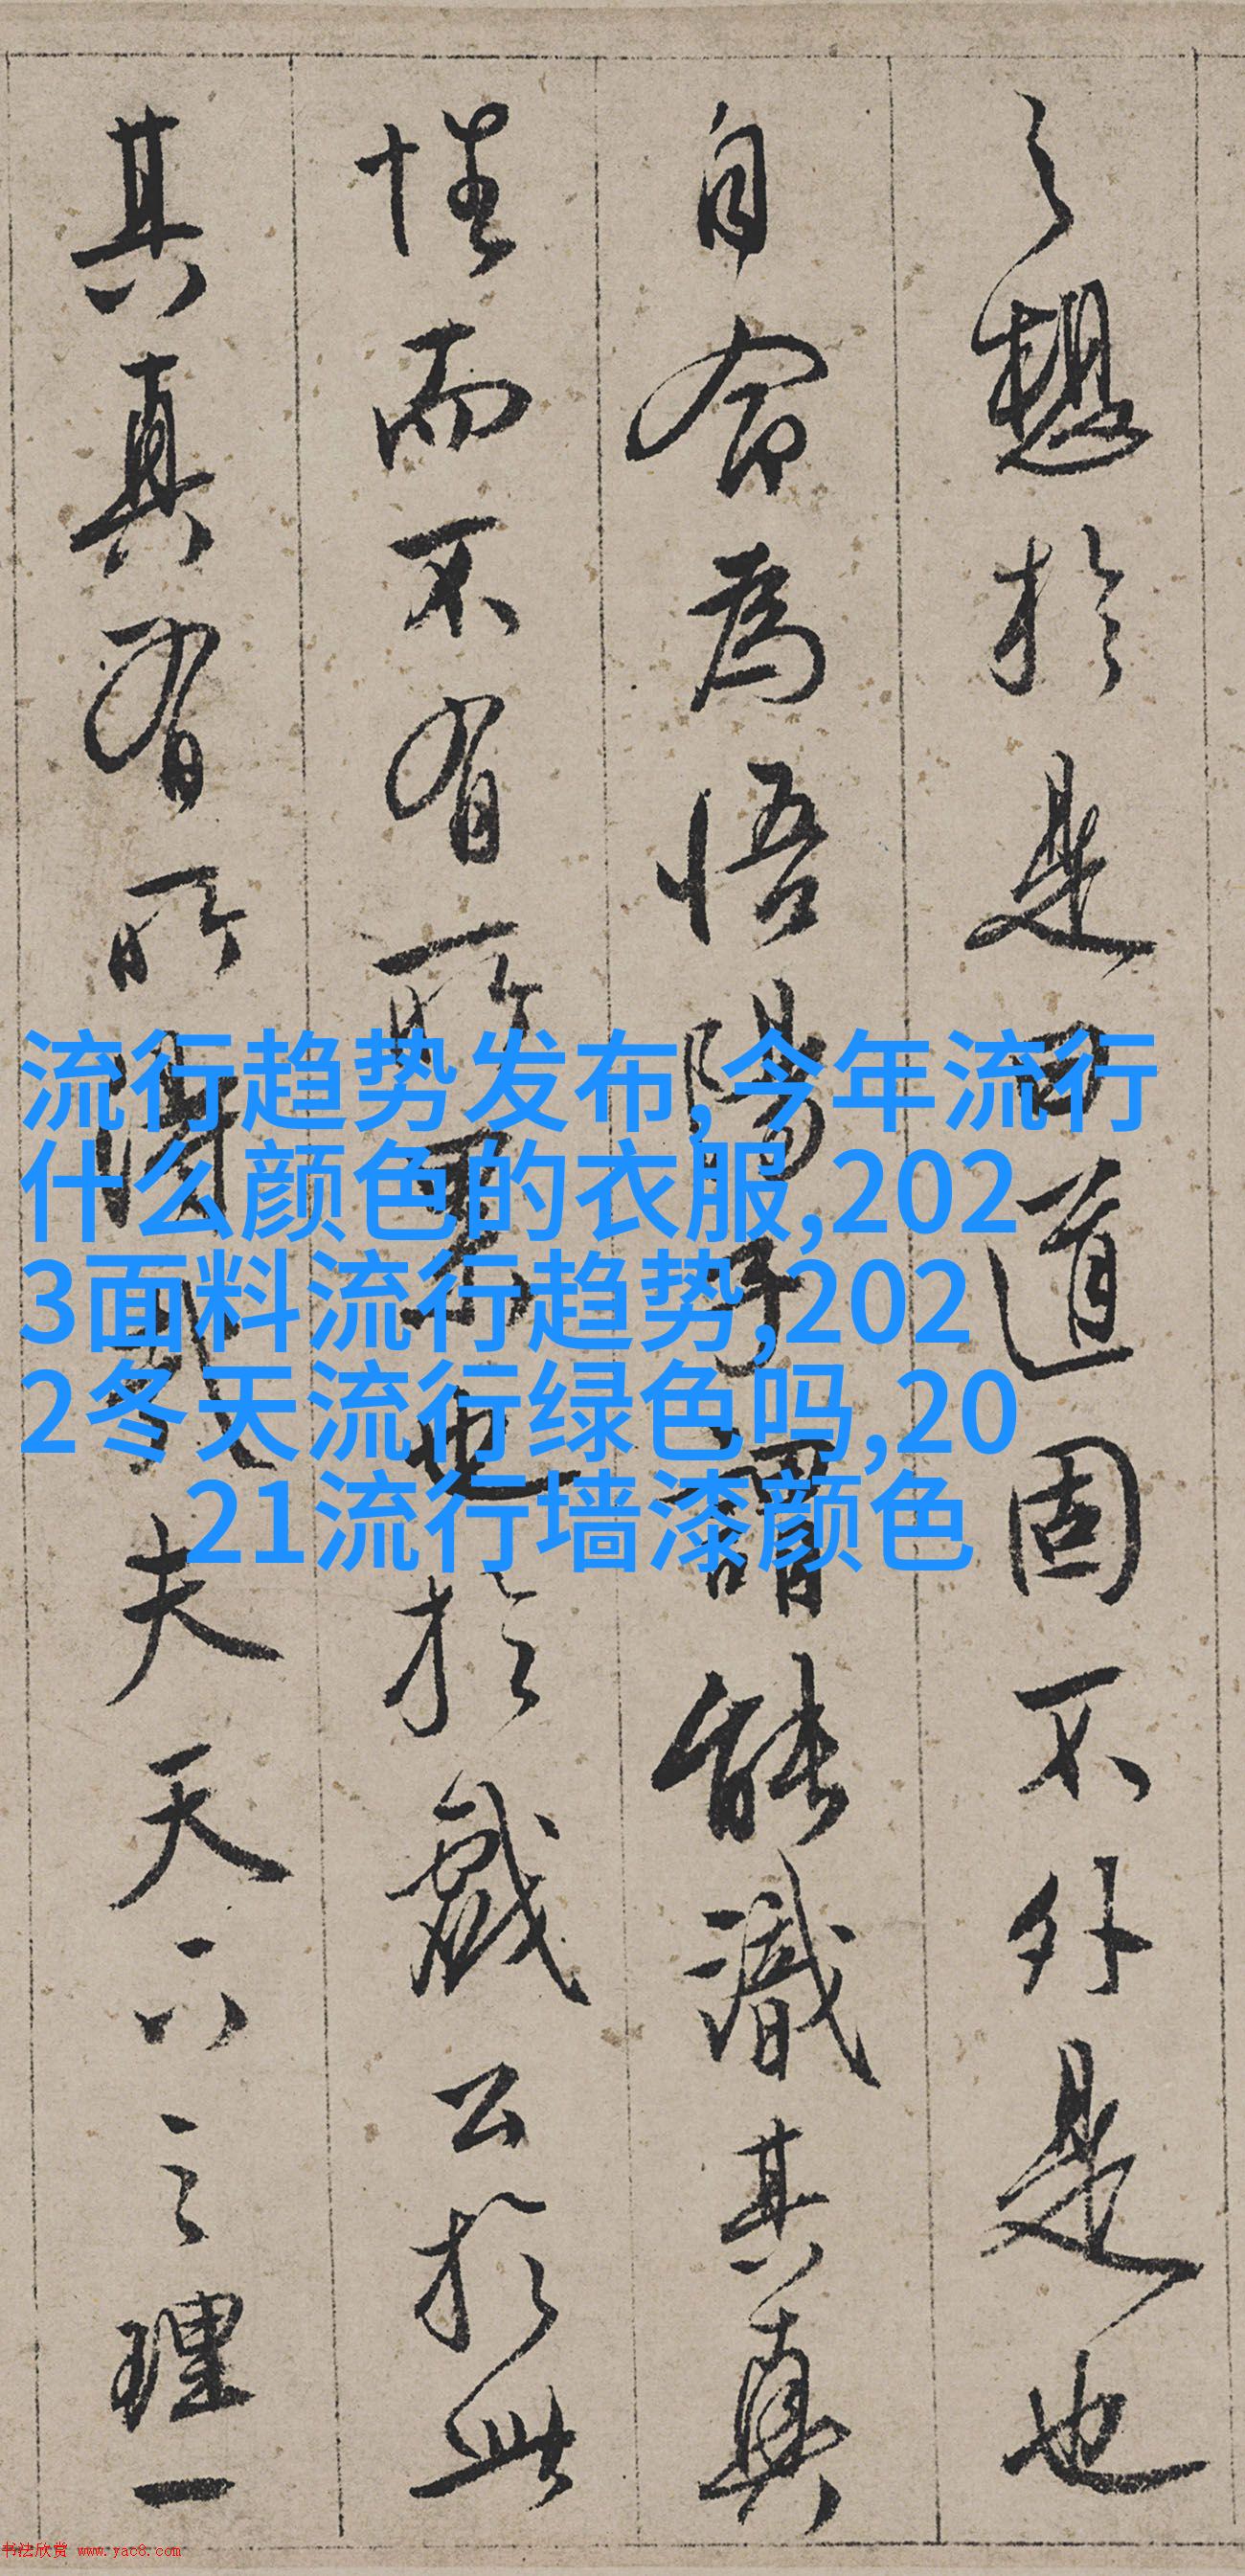 之想於是日道固不外是也
自命為悟陽子謂能識其真
性而不有所累也於戲公於此
其真有所得哉夫天下之理一
流行趋势发布,今年流行
什么颜色的衣服,202
3面料流行趋势,202
2冬天流行绿色吗,20
21流行墙漆颜色
书法欣赏 www.yac8.com